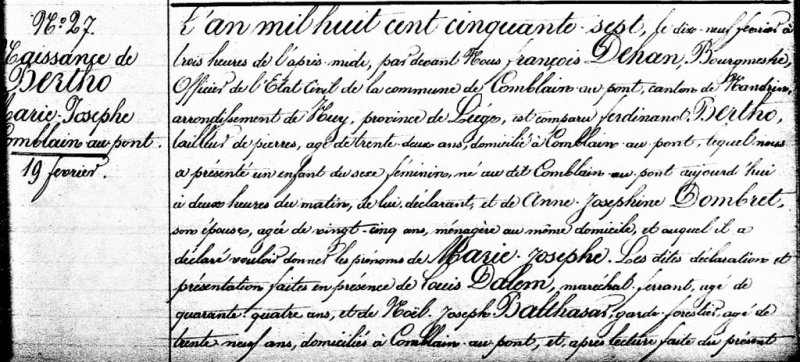 N.° 27.
Naissance de
Bertho
Marie Josephe
Comblain au pont.
19 fevrier.
L'an mil huit cent cinquante-sept, le dix-neuf fevrier à
trois heures de l'après-midi, par devant Nous françois Dehan, Bourgmestre,
Officier de l'Etat Civil de la commune de Comblain-au-pont, canton de Nandrin,
arrondissement de Huy, province de Liége, est comparu ferdinand Bertho,
tailleur de pierres, agé de trente-deux ans, domicilié à Comblain-au-pont, lequel nous
a présenté un enfant du sexe féminin, né au dit Comblain-au-pont aujourd'hui
à deux heures du matin, de lui déclarant, et de Anne-Josephine Dombret,
son épouse, agée de vingt-cinq ans, ménagère au même domicile, et auquel il a
déclaré vouloir donner les prénoms de Marie-Josephe. Les dites déclaration et
présentation faites en présence de Louis Dalem, maréchal-ferrant, agé de
quarante-quatre ans, et de Noël-Joseph Balthasar, garde-forestier, agé de
trente neuf ans, domiciliés à Comblain-au-pont, et, après lecture faite du présent